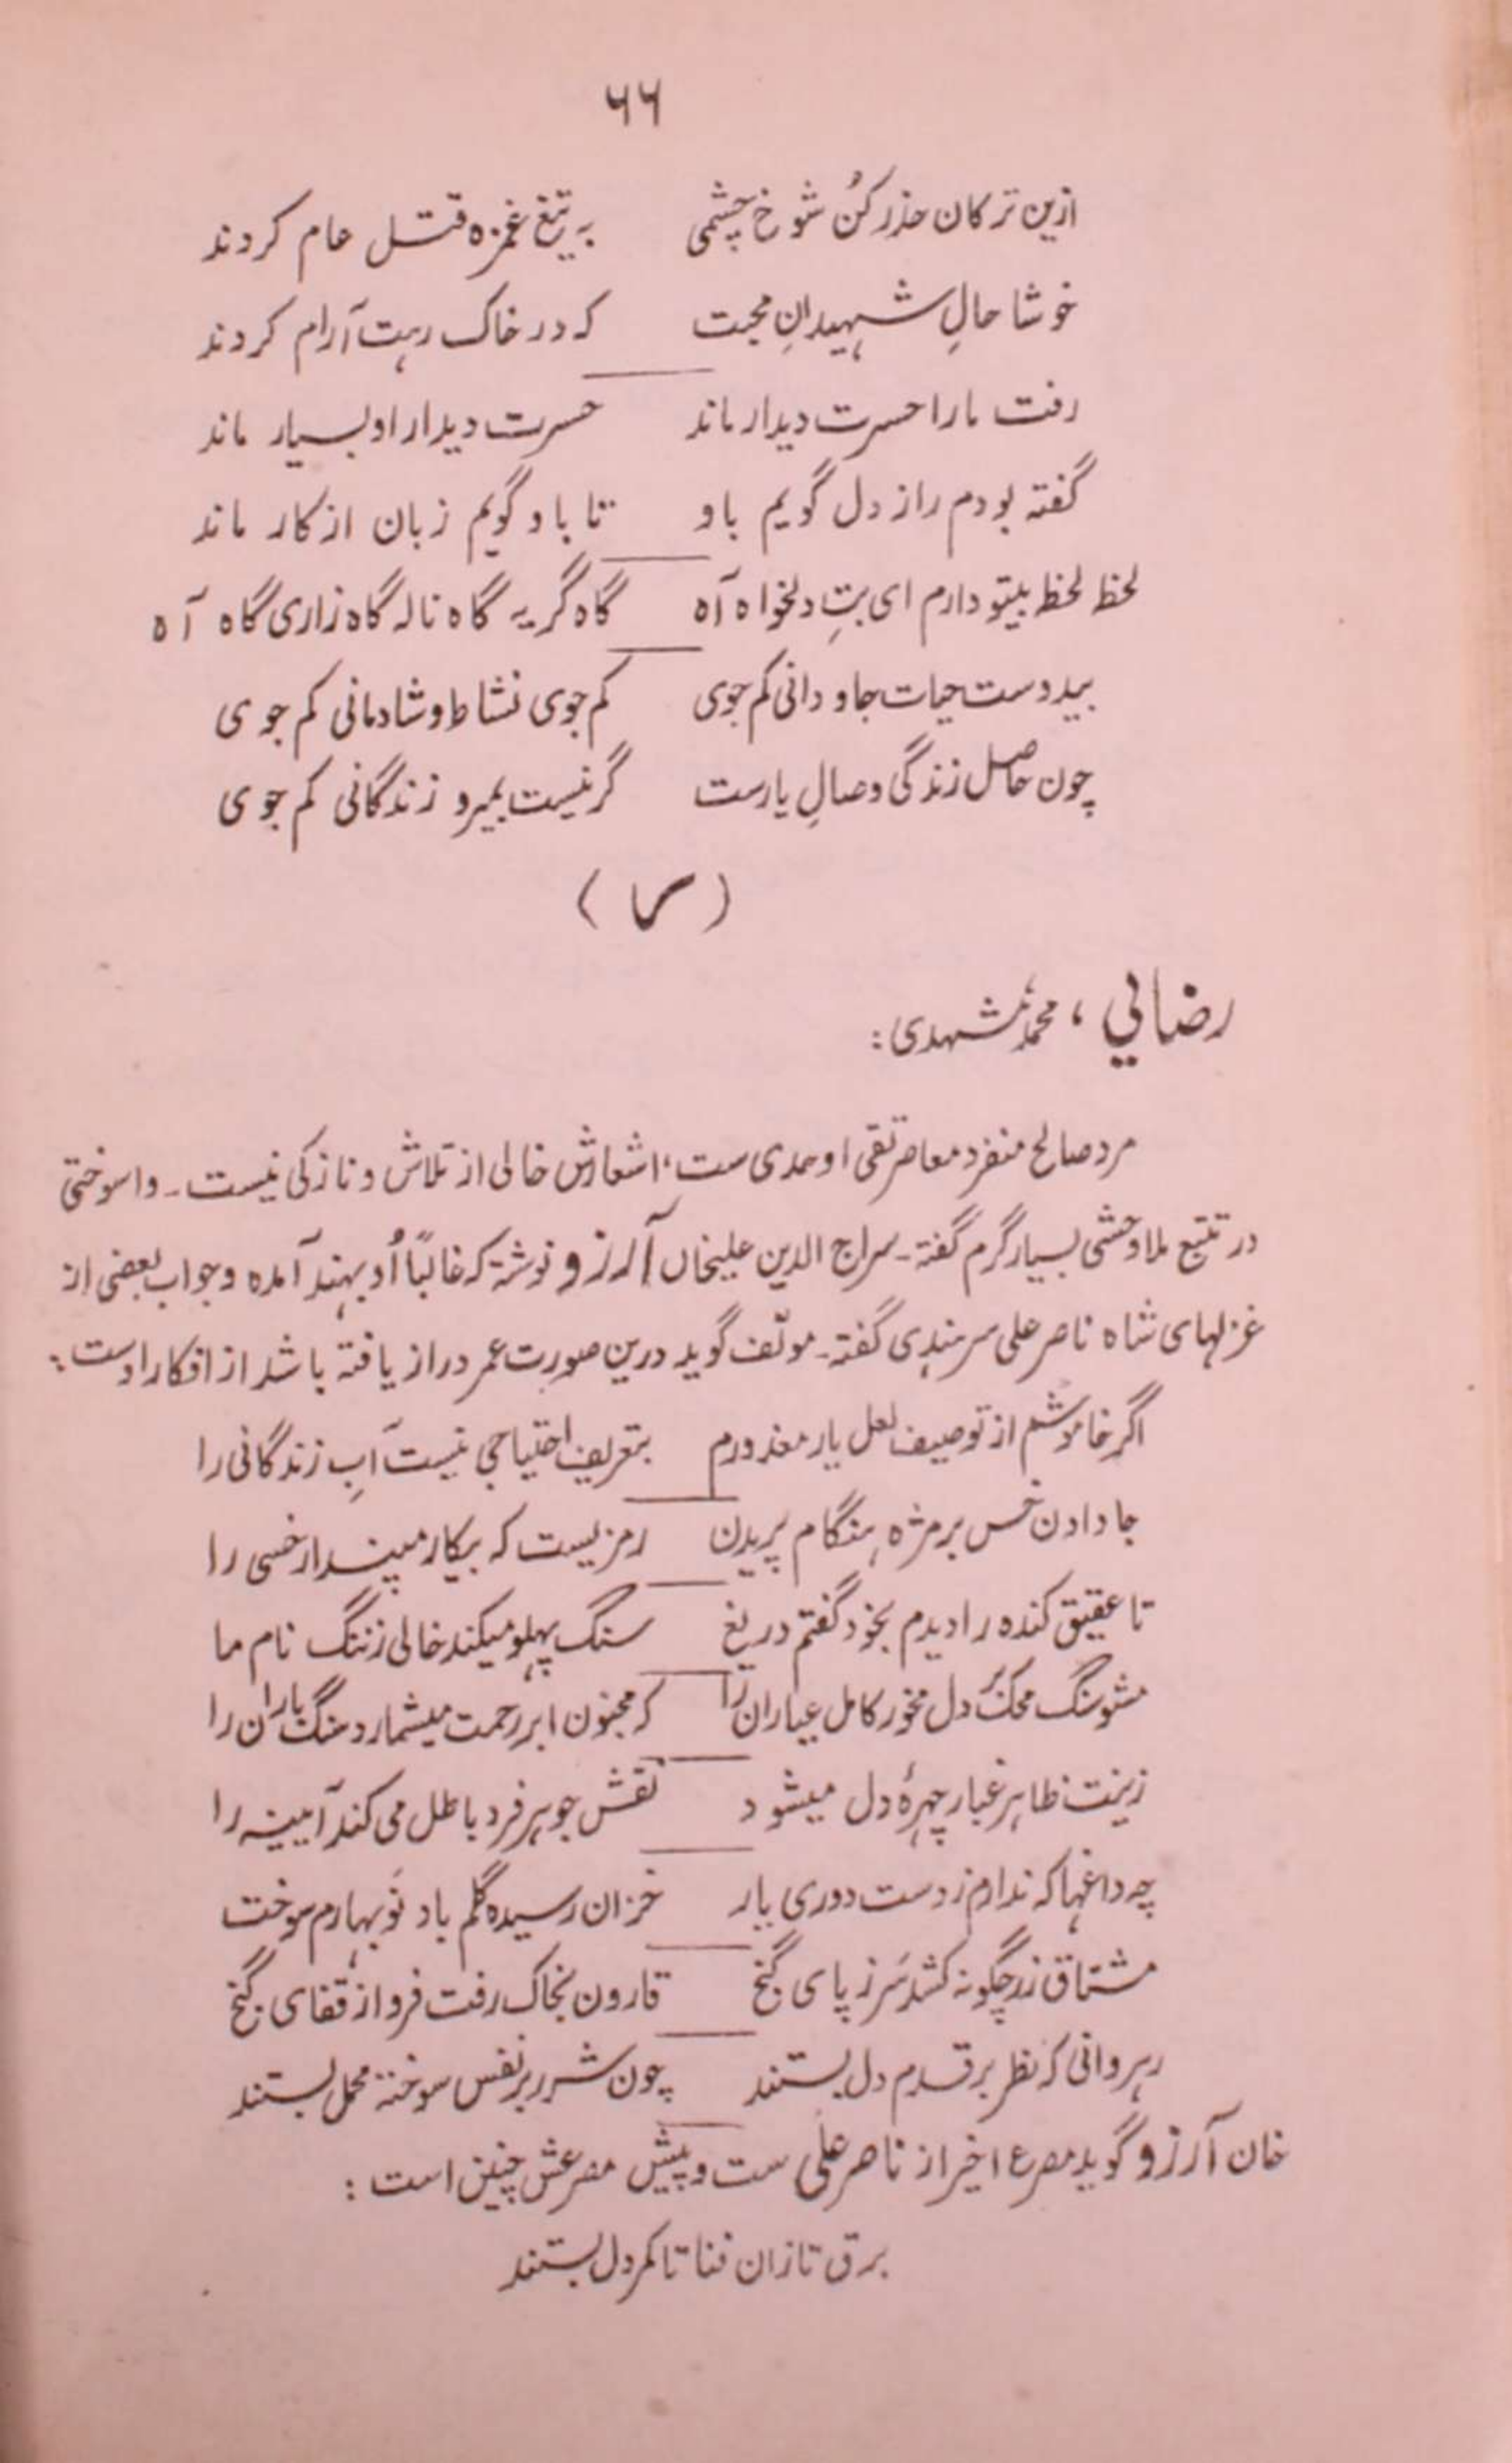 ۶۶
ازین ترکان حذر کن شوخ چشمی به تیغ غمزه قتل عام کردند
خوشا حالِ شهیدانِ محبت که در خاک رهت آرام کردند
رفت ما را حسرت دیدار ماند حسرت دیدار او بسیار ماند
گفته بودم راز دل گویم باو تا باو گویم زبان از کار ماند
لحظ لحظ بیتو دارم ای بتِ دلخواه آه گاه گریه گاه ناله گاه زاری گاه آه
بیدوست حیات جاودانی کم جوی کم جوی نشاط و شادمانی کم جوی
چون حاصل زندگی وصالِ یارست گر نیست بمیر و زندگانی کم جوی
(ر)
رضایي، محمد مشهدی:
مرد صالح منفرد معاصر تقی اوحدی ست، اشعارش خالی از تلاش و نازکی نیست۔ واسوختی
در تتبع ملا وحشی بسیار گرم گفته۔ سراج الدین علیخاں آرزو نوشته که غالباً اُو بهند آمده و جواب بعضی از
غزلهای شاه ناصر علی سرهندی گفته۔ مولّف گوید درین صورت عمر دراز یافته باشد از افکار اوست:
اگر خاموشم از توصیف لعل یار معذورم بتعریف احتیاجی نیست آبِ زندگانی را
جا دادن خس بر مژه هنگام پریدن رمزیست که بیکار مپندار خسی را
تا عقیق کنده را دیدم بخود گفتم دریغ سنگ پهلو میکند خالی ز ننگ نام ما
مشو سنگ محک بر دل مخور کامل عیاران را که مجنون ابر رحمت میشمارد سنگ باران را
زینت ظاهر غبار چهرۂ دل میشود نقش جوهر فرد باطل می کند آیینه را
چه داغها که ندارم ز دست دوری یار خزان رسیده گلم باد نَوبهارم سوخت
مشتاق زر چگونه کشد سَر ز پای گنج قارون بخاک رفت فرو از قفای گنج
رهروانی که نظر بر قدم دل بستند چون شرر بر نفس سوخته محمل بستند
خان آرزو گوید مصرع اخیر از ناصر علی ست و پیش مصرعش چنین است:
برق تازان فنا تا کمر دل بستند